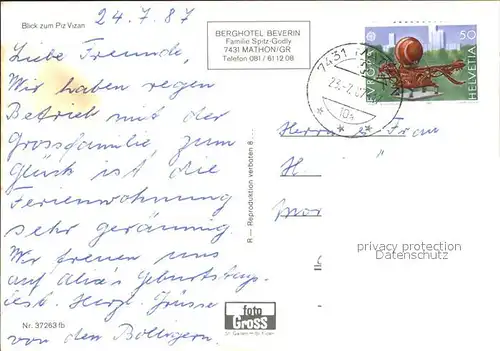 Blick zum Piz Vizan
24.7.87
BERGHOTEL BEVERIN
Familie Spitz-Godly
7431 MATHON/GR
Telefon 081 / 61 12 08
Liebe Freunde,
Wir haben regen
Betrieb mit der
Grossfamilie, zum
Glück ist die
Ferienwohnung
sehr geräumig.
Wir freuen uns
auf Alix's Geburtstags-
fest. Herzl. Grüsse
von den Bolligern.
Nr. 37263 fb
R — Reproduktion verboten 8...
foto
Gross
St. Gallen
7431
23.-7.87
EUROPA
50
HELVETIA
Frau
H.
privacy protection
Datenschutz